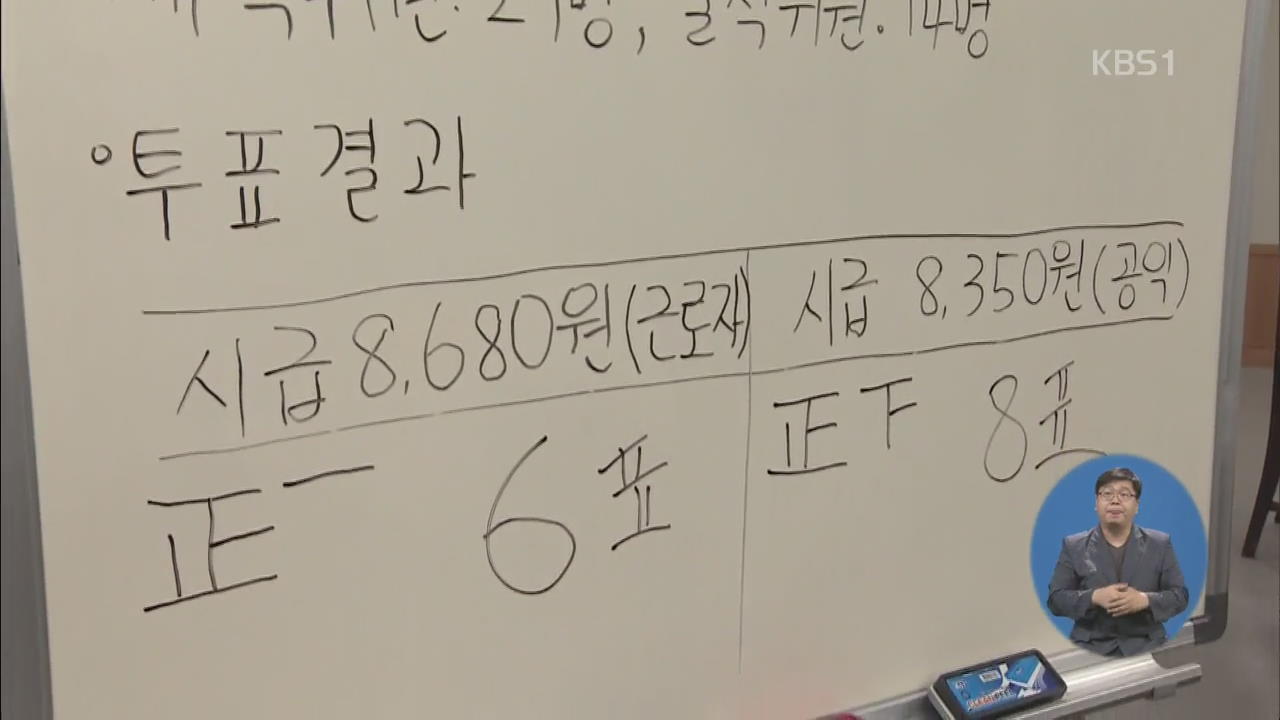 재적위원: 27명, 출석위원: 14명
KBS1
투표결과
시급 8,680원(근로자) 시급 8,350원(공익)
正一 6표 正下 8표